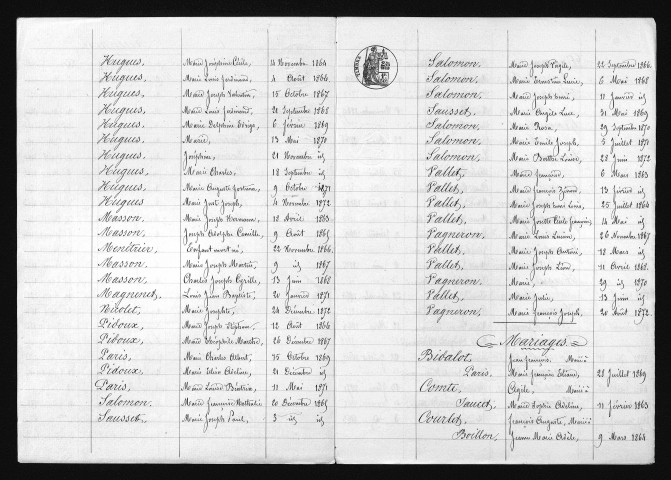 Hugues, Marie Joséphine Cécile, 14 Novembre 1864
Hugues, Marie Louis Ferdinand, 4 Août 1866
Hugues, Marie Joseph Valentin, 15 Octobre 1867
Hugues, Marie Louis Ferdinand, 21 Septembre 1868
Hugues, Marie Delphine 6 février 1869
Hugues, Marie, 13 Mai 1870
Hugues, Joséphine, 21 Novembre id
Hugues, Marie Charles, 18 Septembre id
Hugues, Marie Auguste 9 Octobre 1871
Hugues Marie Joseph, 4 Novembre 1872
Masson, Marie Joseph Hermann, 18 Avril 1863
Masson, Joseph Adolphe Camille, 9 Août 1865
Menétrier, Enfant mort né, 22 Novembre 1866
Masson, Marie Joseph Martin, 9 id 1867
Masson, Charles Joseph Cyrille, 13 Juin 1868
Magninet, Louis Jean Baptiste, 20 Janvier 1871
Nicolet, Marie Josephte, 24 Décembre 1872
Pidoux, Marie Joseph Stéphane, 12 Août 1864
Pidoux, Marie Théophile 26 Décembre 1867
Paris, Marie Charles Albert, 15 Octobre 1869
Pidoux, Marie 21 Décembre id
Paris, Marie Louise Béatrice, 11 Mai 1871
Salomon, Marie Françoise Nathalie 20 Décembre 1865
Sausset, Marie Joseph Paul, 3 id id
Salomon, Marie Joseph Virgile, 22 Septembre 1866
Salomon, Marie Ernestine Lucie, 6 Mai 1868
Salomon, Marie Joseph 11 Janvier id
Sausset, Marie Angèle Luce, 31 Mai 1869
Salomon, Marie Rosa, 29 Septembre 1870
Salomon, Marie Emile Joseph, 5 Juillet 1871
Salomon, Marie Berthe Louise, 28 Juin 1872
Vallet, Marie 6 Mars 1863
Vallet, Marie François 13 février id
Vallet, Marie Joseph 25 Juillet 1864
Vallet, Marie Cécile 14 Mai id
Vagneron, Marie Louis Lucien, 26 Novembre 1867
Vallet, Marie Joseph 18 Mars id
Vallet, Marie Joseph Léon, 11 Avril 1868
Vagneron, Marie, 29 id 1870
Vallet, Marie Julie, 13 Juin id
Vagneron, Marie François Joseph, 20 Août 1872
Mariages.
Bidalot, Jean François, Marié à
Paris, Marie Françoise 28 Juillet 1869
Comte, Cécile, Mariée à
Saucet, Marie 11 février 1863
Courlet, François Auguste, Marié à
Boillon, Jeanne Marie Adèle, 9 Mars 1864